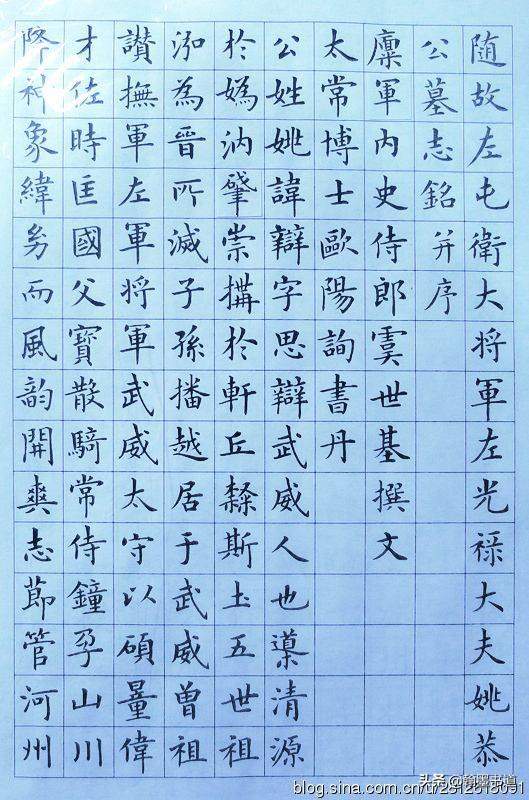 随故左屯衛大将軍左光禄大夫姚恭
公墓志銘并序
廪軍内史侍郎虞世基撰文
太常博士歐陽詢書丹
公姓姚諱辯字思辯武威人也導清源
於嬀汭肇崇搆於軒丘斯土五世祖
泓為晋所滅子孫播越居于武威曾祖
讚撫軍左軍将軍武威太守以碩量偉
才佐時匡國父寶散騎常侍鐘孕山川
降神象緯而風韵開爽志節管河州
头条@翰墨书道